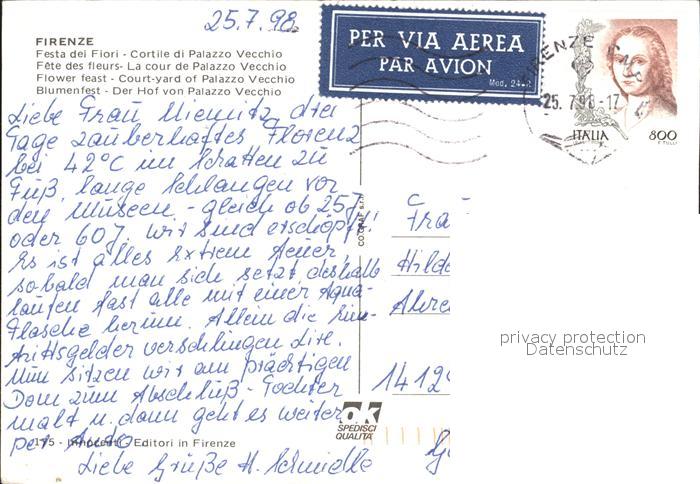 25.7.98
FIRENZE
Festa dei Fiori - Cortile di Palazzo Vecchio
Fête des fleurs- La cour de Palazzo Vecchio
Flower feast - Court-yard of Palazzo Vecchio
Blumenfest - Der Hof von Palazzo Vecchio
PER VIA AEREA
PAR AVION
Mod. 24-R
FIRENZE
25.7.98-17
ITALIA 800
Liebe Frau Niemitz, drei
Tage zauberhaftes Florenz
bei 42°C im Schatten zu
Fuß, lange Schlangen vor
den Museen - gleich ob 25J
oder 60J. wir sind erschöpft!
Es ist alles extrem teuer,
sobald man sich setzt deshalb
laufen fast alle mit einer Aqua-
Flasche herum. Allein die Ein-
trittsgelder verschlingen Lire.
Nun sitzen wir am prächtigen
Dom zum Abschluß - Tochter
malt u. dann geht es weiter
per Auto.
Liebe Grüße H. Schmidke
175 - Innocenti - Editori in Firenze
ok
SPEDISCI
QUALITÀ
Fra
Hild
Ahre
1412
privacy protection
Datenschutz